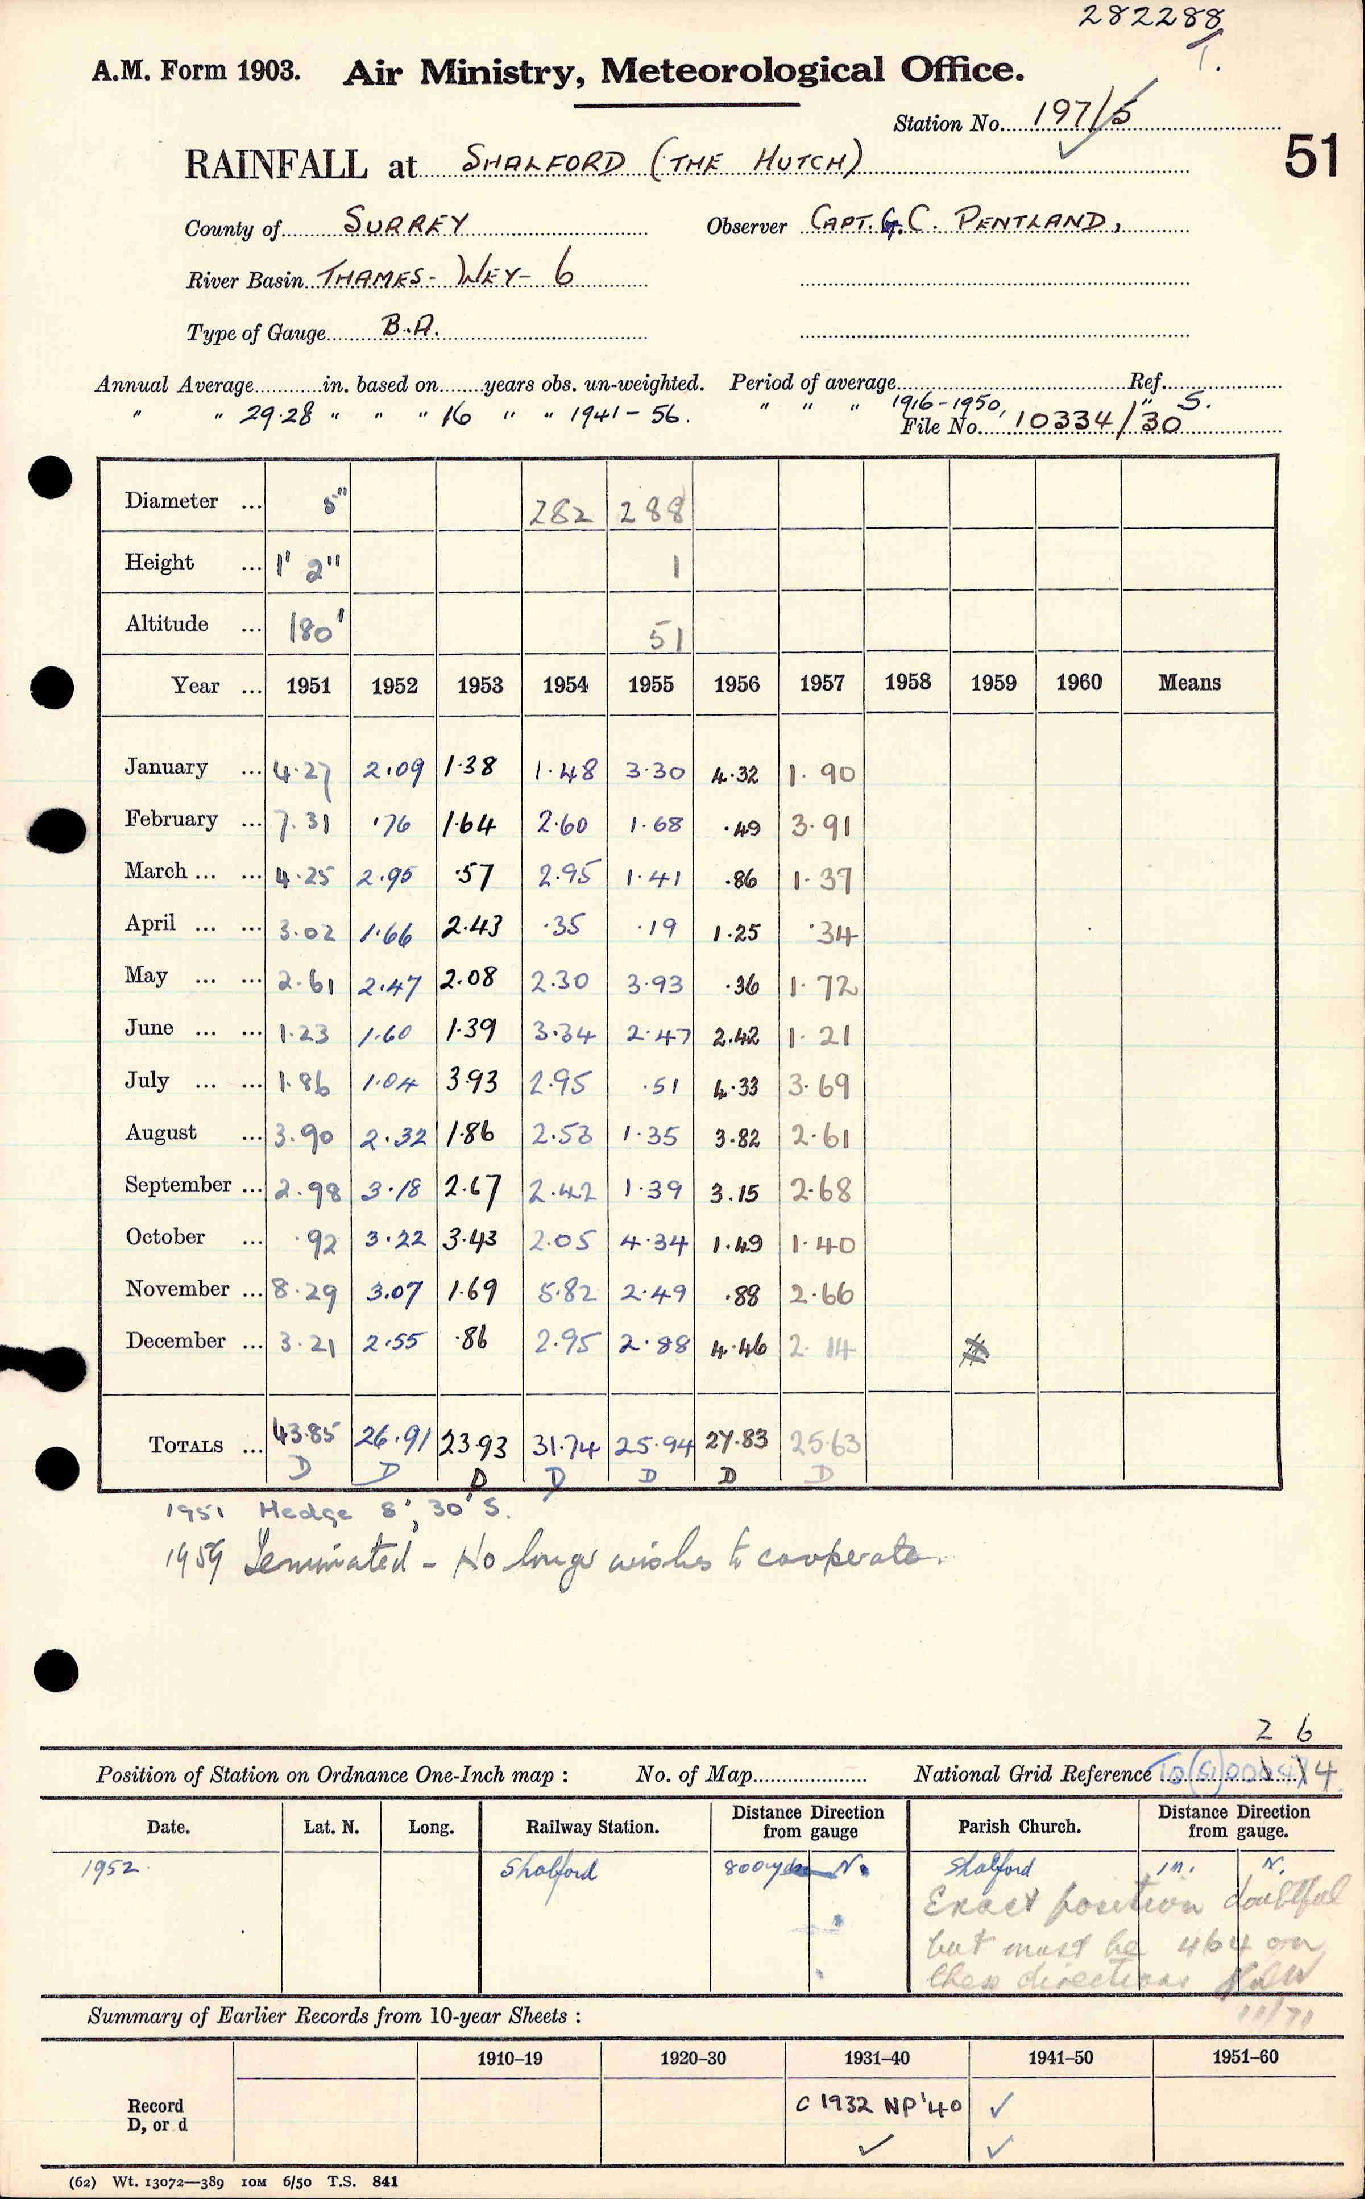 282288
/1.
A.M. Form 1903. Air Ministry, Meteorological Office.
Station No. 197/5
51
RAINFALL at SHALFORD (THE HUTCH)
County of SURREY Observer CAPT. G.C. PENTLAND,
River Basin THAMES - WEY - 6
Type of Gauge B.A.
Annual Average in. based on years obs. un-weighted. Period of average Ref.
" " 29.28 " " " 16 " " 1941-56. " " " 1916-1950, " S.
File No. 10334/30
Diameter ... 5" 282 288
Height ... 1' 2" 1
Altitude ... 180' 51
Year ... 1951 1952 1953 1954 1955 1956 1957 1958 1959 1960 Means
January ... 4.27 2.09 1.38 1.48 3.30 4.32 1.90
February ... 7.31 .76 1.64 2.60 1.68 .49 3.91
March ... ... 4.25 2.95 .57 2.95 1.41 .86 1.37
April ... ... 3.02 1.66 2.43 .35 .19 1.25 .34
May ... ... 2.61 2.47 2.08 2.30 3.93 .36 1.72
June ... ... 1.23 1.60 1.39 3.34 2.47 2.42 1.21
July ... ... 1.86 1.04 3.93 2.95 .51 4.33 3.69
August ... 3.90 2.32 1.86 2.53 1.35 3.82 2.61
September ... 2.98 3.18 2.67 2.42 1.39 3.15 2.68
October ... .92 3.22 3.43 2.05 4.34 1.49 1.40
November ... 8.29 3.07 1.69 5.82 2.49 .88 2.66
December ... 3.21 2.55 .86 2.95 2.88 4.46 2.14
TOTALS ... 43.85 26.91 23.93 31.74 25.94 27.83 25.63
D D D D D D D
1951 Hedge 8', 30' S.
1959 Terminated - No longer wishes to cooperate.
2 6
Position of Station on Ordnance One-Inch map : No. of Map National Grid Reference
Date. Lat. N. Long. Railway Station. Distance Direction from gauge Parish Church. Distance Direction from gauge.
1952 Shalford 800 yds N. Shalford 1m. N.
Exact position doubtful
but must be 464 on
these directions
11/71
Summary of Earlier Records from 10-year Sheets :
1910–19 1920–30 1931–40 1941–50 1951–60
Record C 1932 NP '40 ✓
D, or d ✓ ✓
(62) Wt. 13072—389 10M 6/50 T.S. 841